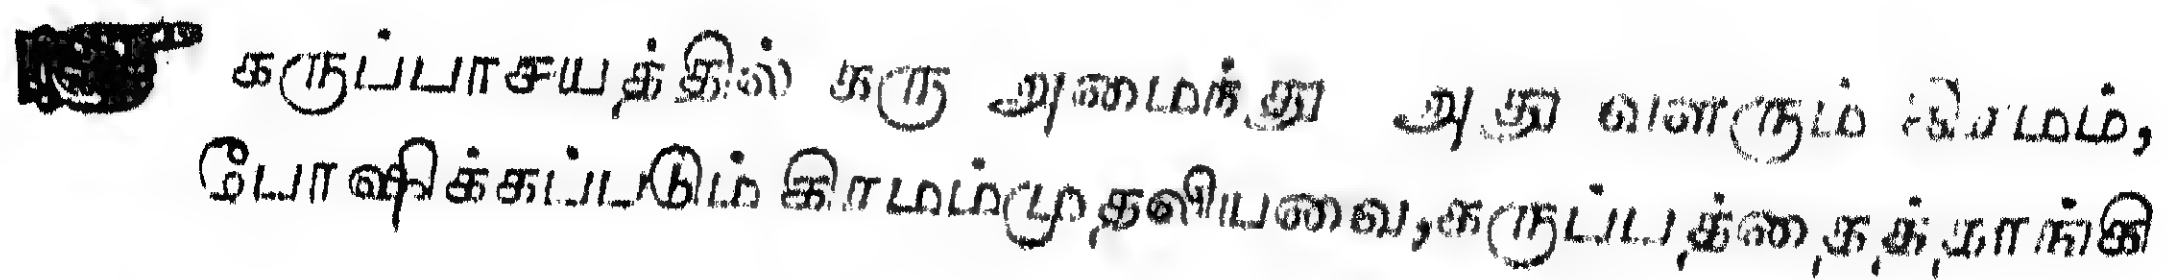 கருப்பாசயத்தில் கரு அமைந்து அது வளரும் கிரமம்,
போஷிக்கப்படும் கிரமம் முதலியவை, கருப்பத்தைத் தாங்கி